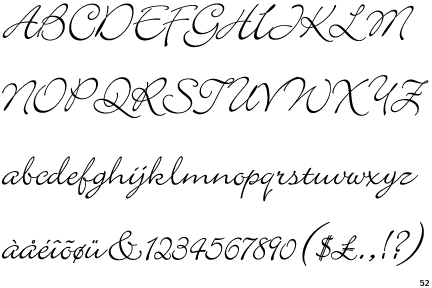 ABCDEFGHIJKLM
NOPQRSTUVWXYZ
abcdefghijklmnopqrstuvwxyz
àåéîõøü&1234567890($£.,!?)
52